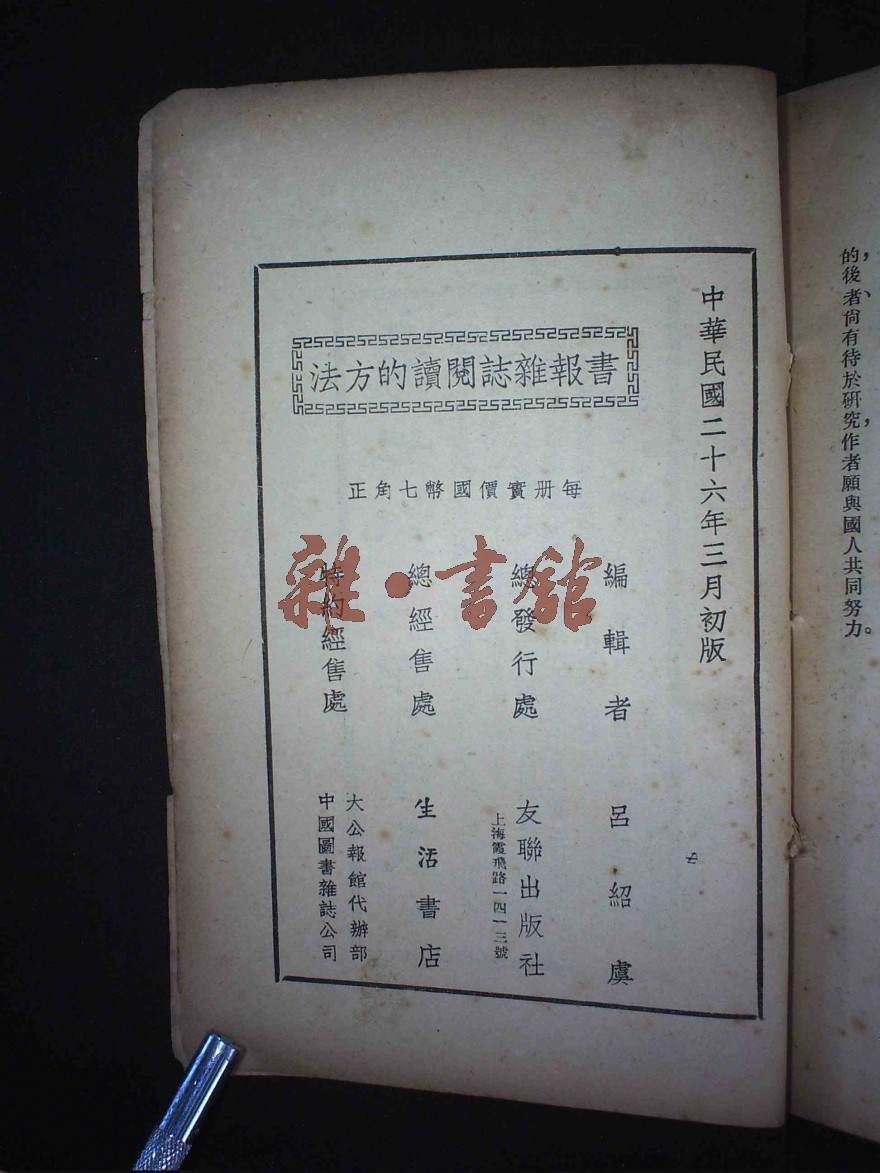 的後者尙有待於硏究，作者願與國人共同努力。
中華民國二十六年三月初版
書報雜誌閱讀的方法
每册實價國幣七角正
編輯者 呂紹虞
總發行處 友聯出版社
上海霞飛路一四一三號
總經售處 生活書店
特約經售處 大公報館代辦部
中國圖書雜誌公司
雜·書館